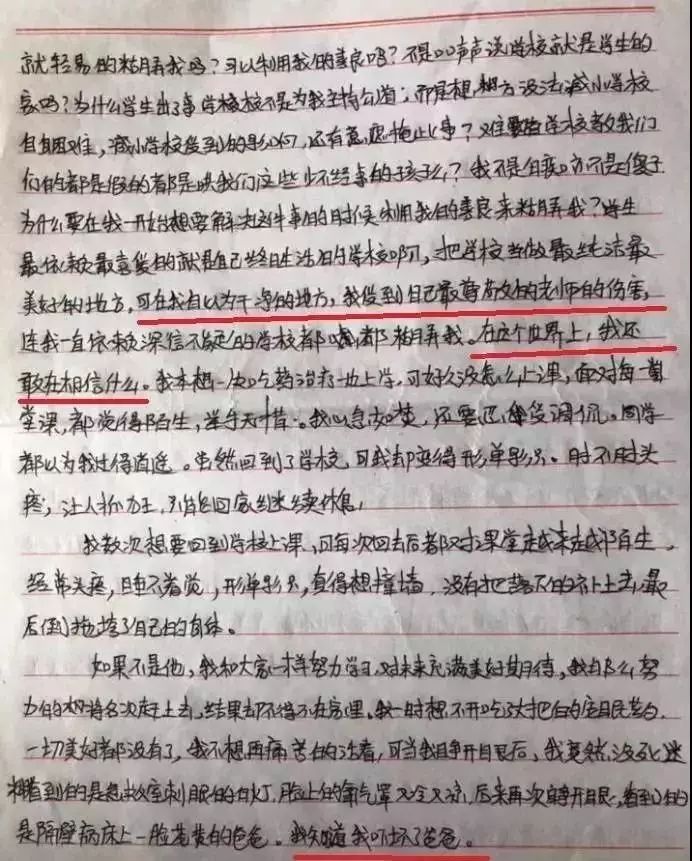 就轻易的糊弄我吗？可以利用我的善良吗？不是口口声声说学校就是学生的
家吗？为什么学生出了事学校不是为我主持公道；而是想方设法减小学校
的困难，减小学校受到的影响，还有意思掩止事？难学校教我们
们的都是假的都是哄我们这些少不经事的孩子么？我不是不是傻子
为什么要在我一开始想要解决这件事的时候利用我的善良来糊弄我？学生
最依赖最喜爱的就是自己终日生活的学校啊，把学校当做最纯洁最
美好的地方，可在我自以为干净的地方，我受到自己最尊敬的老师的伤害，
连我一直依赖深信不疑的学校都都糊弄我。在这个世界上，我还
敢在相信什么。我本想一边吃药治疗一边上学，可好久没怎么上课，面对每一
堂课，都觉得陌生，举手无措。我心急如焚，还要受调侃。同学
都以为我过得逍遥。当然回到了学校，可我却变得形单影只。时不时头
疼，让人抓狂，只能回家继续休息，
我数次想要回到学校上课，可每次回去后都对课堂越来越陌生，
经常头疼，睡不着觉，形单影只，真得想撞墙，没有把落下的补上去，最
后倒拖垮了自己的身体。
如果不是他，我和大家一样努力学习，对未来充满美好期待，我那么努
力的想将名次赶上去，结果却不得不在房里。我一时想不开吃过把的安眠药，
一切美好都没有了，我不想再痛苦的活着，可当我睁开眼后，我竟然没死，迷
糊看到的是急救室刺眼的白灯，脸上的氧气罩又冷又凉，后来再次睁开眼，看到的
是隔壁病床上一脸苍黄的爸爸。我知道我吓坏了爸爸。